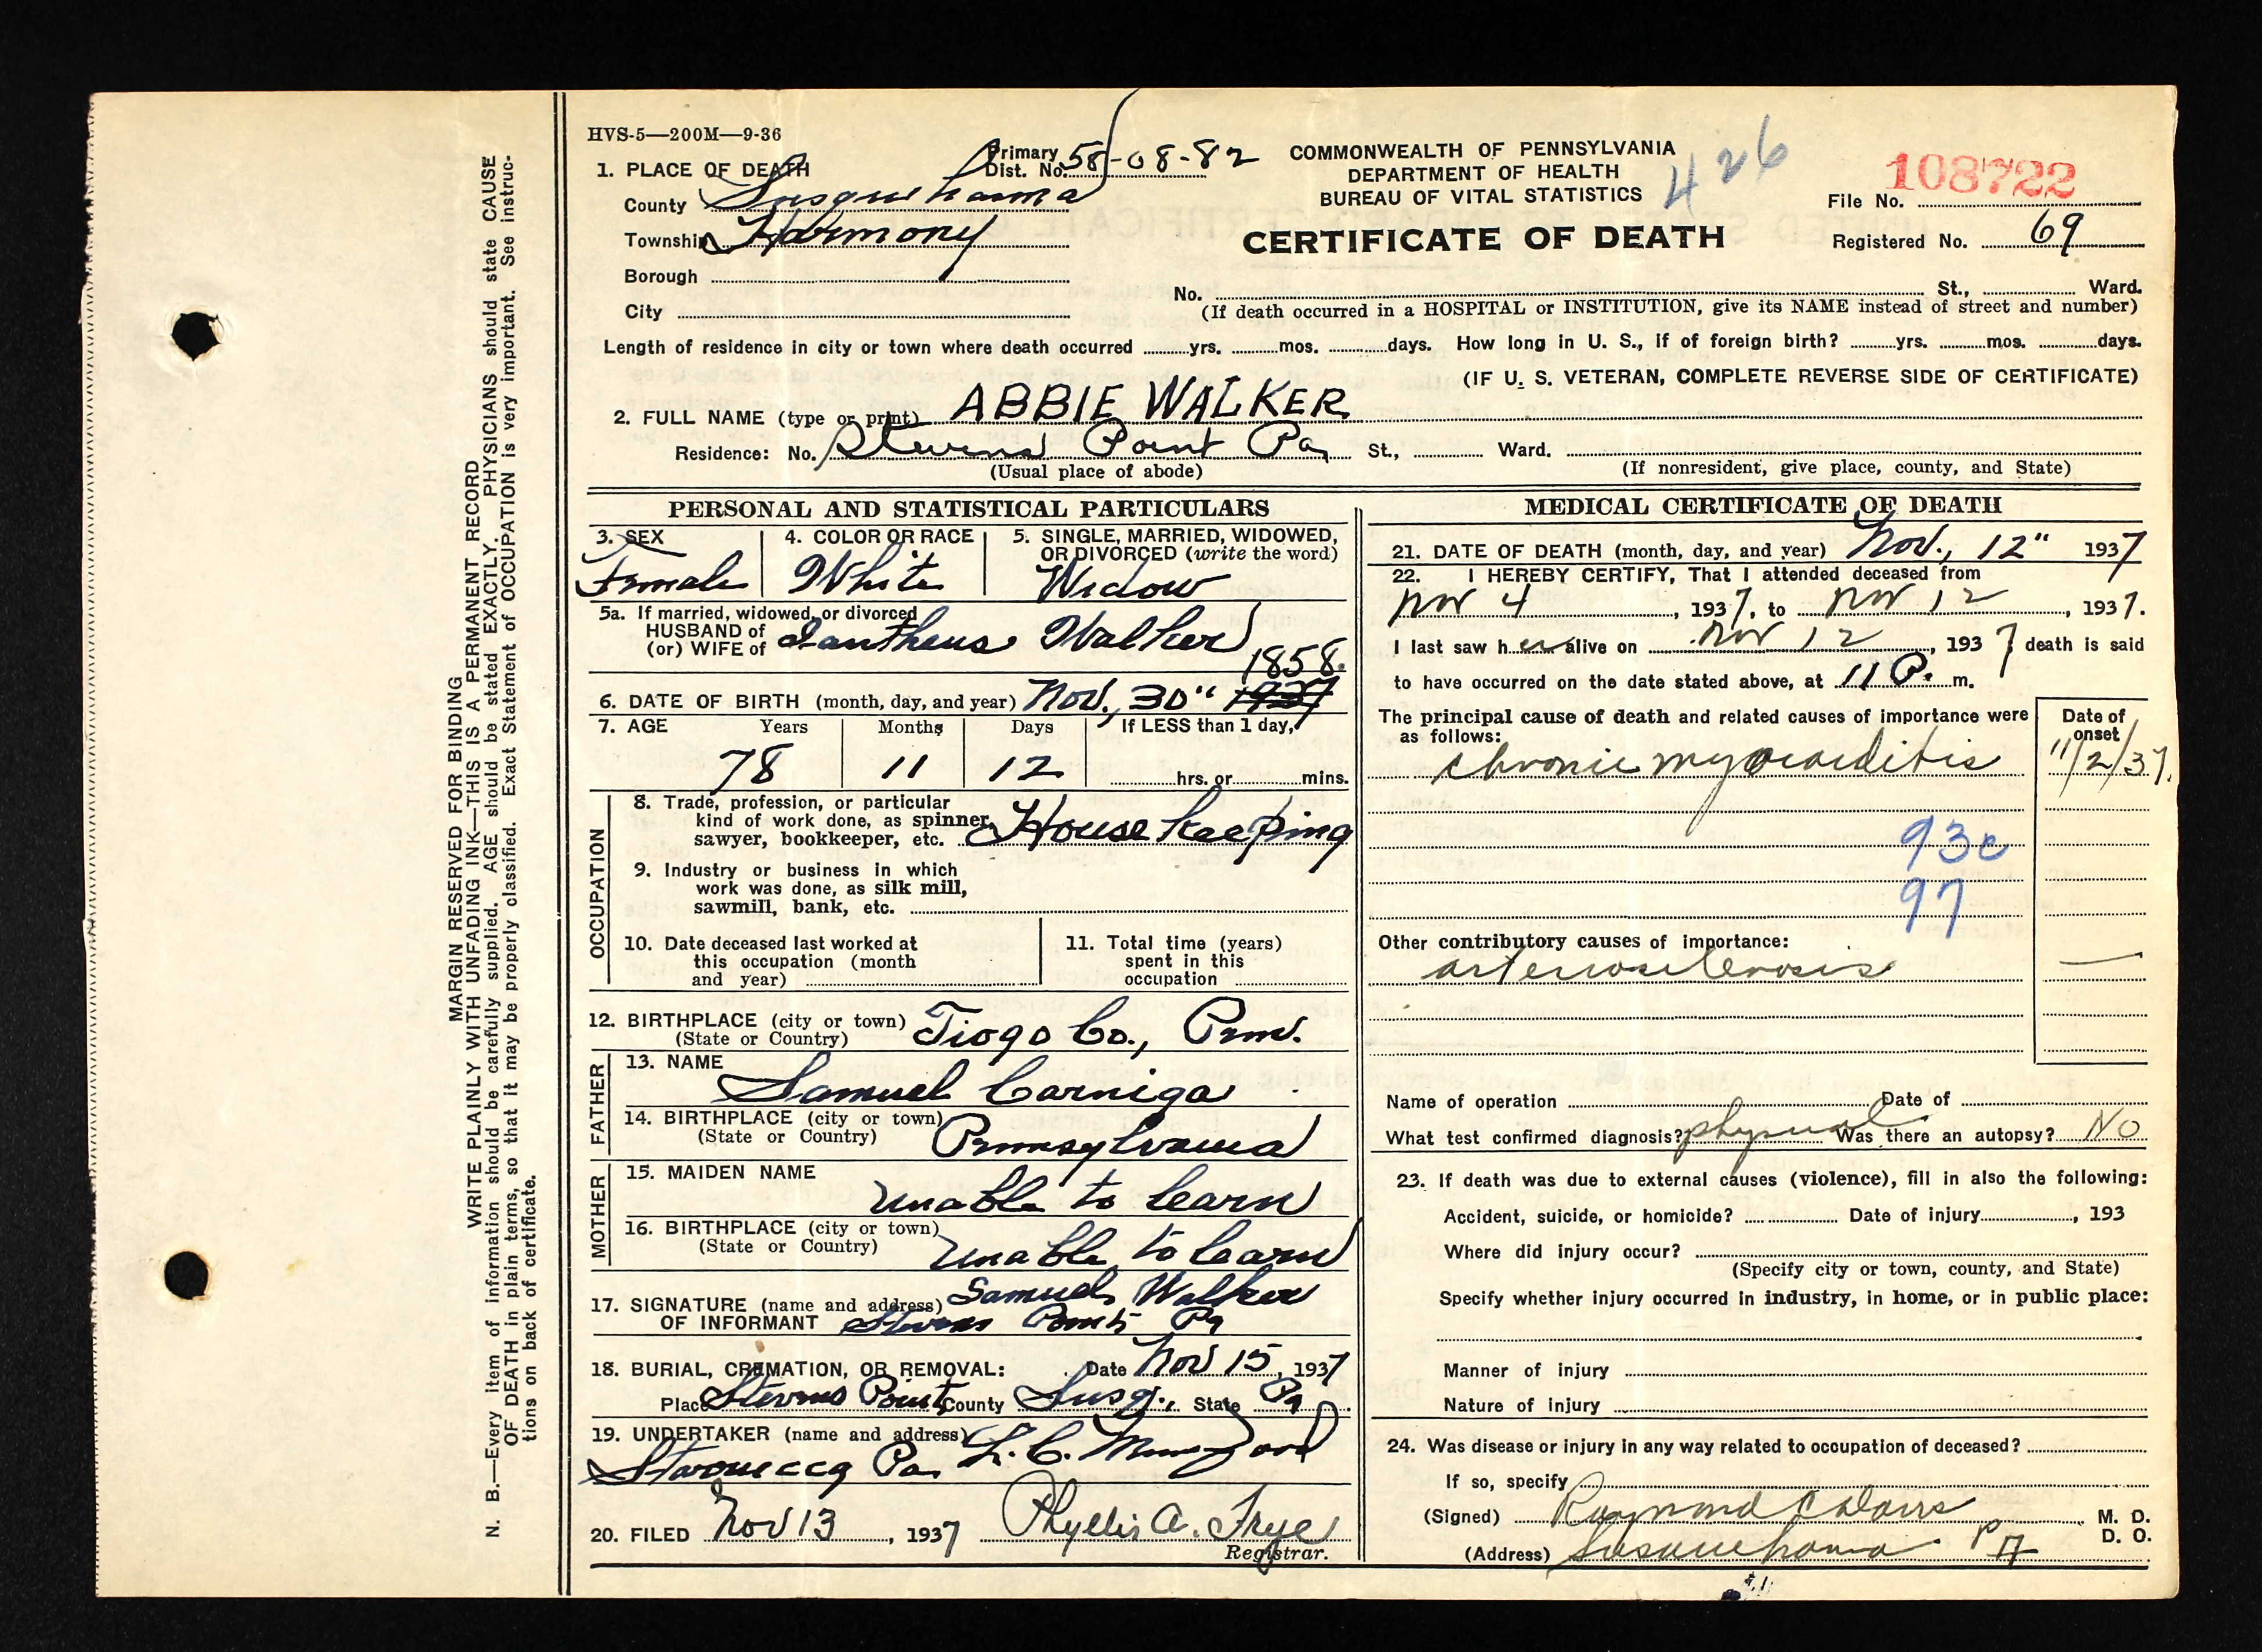 HVS-5—200M—9-36
1. PLACE OF DEATH
Primary Dist. No. 58-08-82
County Susquehanna
Township Harmony
Borough
City
COMMONWEALTH OF PENNSYLVANIA
DEPARTMENT OF HEALTH
BUREAU OF VITAL STATISTICS
426
CERTIFICATE OF DEATH
File No. 108722
Registered No. 69
No. St., Ward.
(If death occurred in a HOSPITAL or INSTITUTION, give its NAME instead of street and number)
Length of residence in city or town where death occurred yrs. mos. days. How long in U. S., if of foreign birth? yrs. mos. days.
(IF U. S. VETERAN, COMPLETE REVERSE SIDE OF CERTIFICATE)
2. FULL NAME (type or print) ABBIE WALKER
Residence: No. Stevens Point Pa St., Ward.
(Usual place of abode) (If nonresident, give place, county, and State)
PERSONAL AND STATISTICAL PARTICULARS
3. SEX Female
4. COLOR OR RACE White
5. SINGLE, MARRIED, WIDOWED, OR DIVORCED (write the word) Widow
5a. If married, widowed, or divorced
HUSBAND of
(or) WIFE of Iantheus Walker
1858.
6. DATE OF BIRTH (month, day, and year) Nov., 30" 1937
7. AGE Years Months Days If LESS than 1 day,
78 11 12 hrs. or mins.
OCCUPATION
8. Trade, profession, or particular
kind of work done, as spinner,
sawyer, bookkeeper, etc. House keeping
9. Industry or business in which
work was done, as silk mill,
sawmill, bank, etc.
10. Date deceased last worked at
this occupation (month
and year)
11. Total time (years)
spent in this
occupation
12. BIRTHPLACE (city or town) Tioga Co., Penn.
(State or Country)
FATHER
13. NAME Samuel Carniga
14. BIRTHPLACE (city or town) Pennsylvania
(State or Country)
MOTHER
15. MAIDEN NAME unable to learn
16. BIRTHPLACE (city or town) unable to learn
(State or Country)
17. SIGNATURE (name and address) Samuel Walker
OF INFORMANT Stevens Point Pa
18. BURIAL, CREMATION, OR REMOVAL: Date Nov 15, 1937
Place Stevens Point County Susq., State Pa
19. UNDERTAKER (name and address) L. C.
Starrucca Pa.
20. FILED Nov 13, 1937 Phyllis A. Frye
Registrar.
MEDICAL CERTIFICATE OF DEATH
21. DATE OF DEATH (month, day, and year) Nov., 12" 1937
22. I HEREBY CERTIFY, That I attended deceased from
Nov 4, 1937, to Nov 12, 1937.
I last saw her alive on Nov 12, 1937, death is said
to have occurred on the date stated above, at 11 P. m.
The principal cause of death and related causes of importance were
as follows:
Date of
onset
chronic myocarditis 11/2/37.
93c
97
Other contributory causes of importance:
arteriosclerosis —
Name of operation Date of
What test confirmed diagnosis? physical Was there an autopsy? No
23. If death was due to external causes (violence), fill in also the following:
Accident, suicide, or homicide? Date of injury , 193
Where did injury occur?
(Specify city or town, county, and State)
Specify whether injury occurred in industry, in home, or in public place:
Manner of injury
Nature of injury
24. Was disease or injury in any way related to occupation of deceased?
If so, specify
(Signed) Raymond C M. D.
D. O.
(Address) Susquehanna PA
MARGIN RESERVED FOR BINDING
WRITE PLAINLY WITH UNFADING INK—THIS IS A PERMANENT RECORD
N. B.—Every item of information should be carefully supplied. AGE should be stated EXACTLY. PHYSICIANS should state CAUSE
OF DEATH in plain terms, so that it may be properly classified. Exact Statement of OCCUPATION is very important. See instruc-
tions on back of certificate.